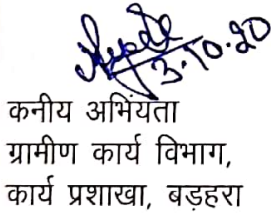 3.10.20
कनीय अभियंता
ग्रामीण कार्य विभाग,
कार्य प्रशाखा, बड़हरा